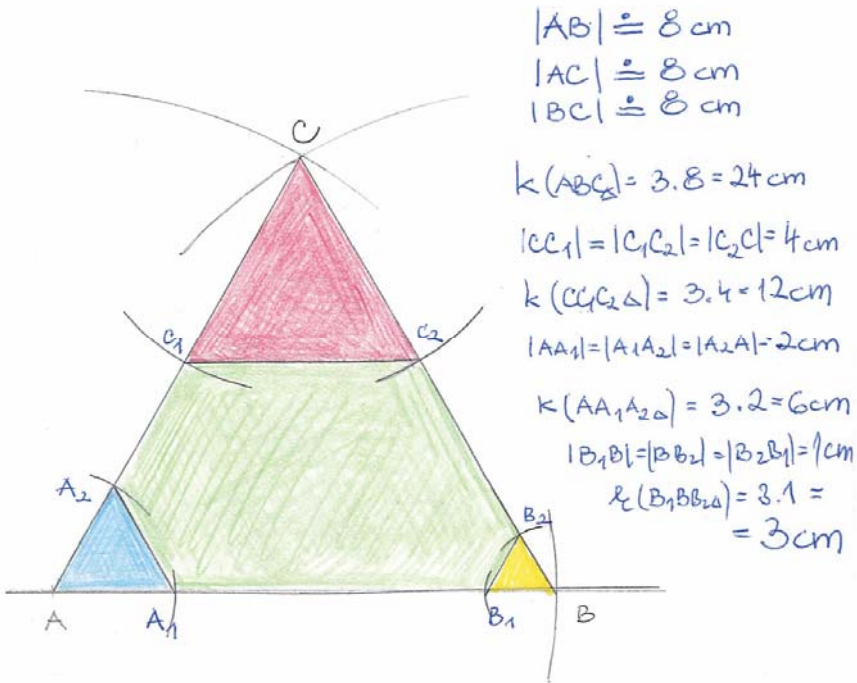 |AB| ≐ 8 cm
|AC| ≐ 8 cm
|BC| ≐ 8 cm
k(ABC△) = 3.8 = 24 cm
|CC₁| = |C₁C₂| = |C₂C| = 4 cm
k(CC₁C₂△) = 3.4 = 12 cm
|AA₁| = |A₁A₂| = |A₂A| = 2 cm
k(AA₁A₂△) = 3.2 = 6 cm
|B₁B| = |BB₂| = |B₂B₁| = 1 cm
k(B₁BB₂△) = 3.1 =
= 3 cm
C
C₁
C₂
A₂
B₂
A
A₁
B₁
B